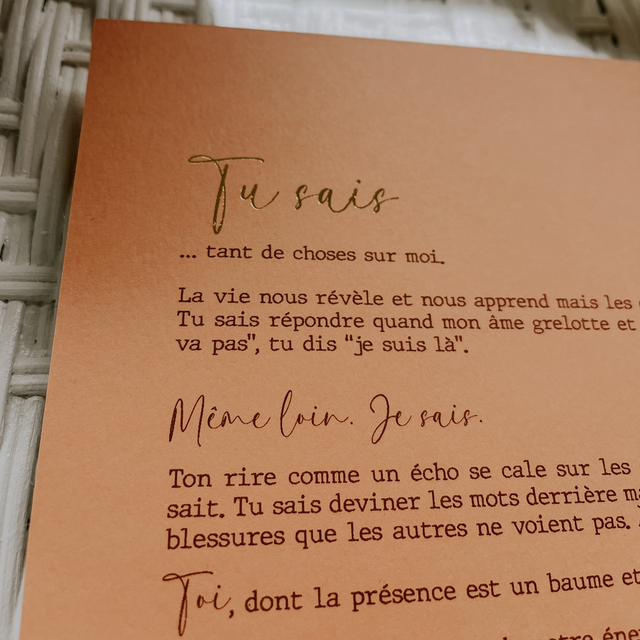 Tu sais
... tant de choses sur moi.
La vie nous révèle et nous apprend mais les
Tu sais répondre quand mon âme grelotte et
va pas", tu dis "je suis là".
Même loin. Je sais.
Ton rire comme un écho se cale sur les
sait. Tu sais deviner les mots derrière
blessures que les autres ne voient pas.
Toi, dont la présence est un baume et